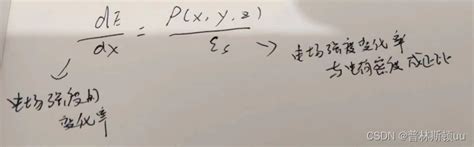 dE/dx = ρ(x, y, z)/εs → 电场强度变化率
与电荷密度成正比
电场强度的
变化率
CSDN @普林斯顿uu